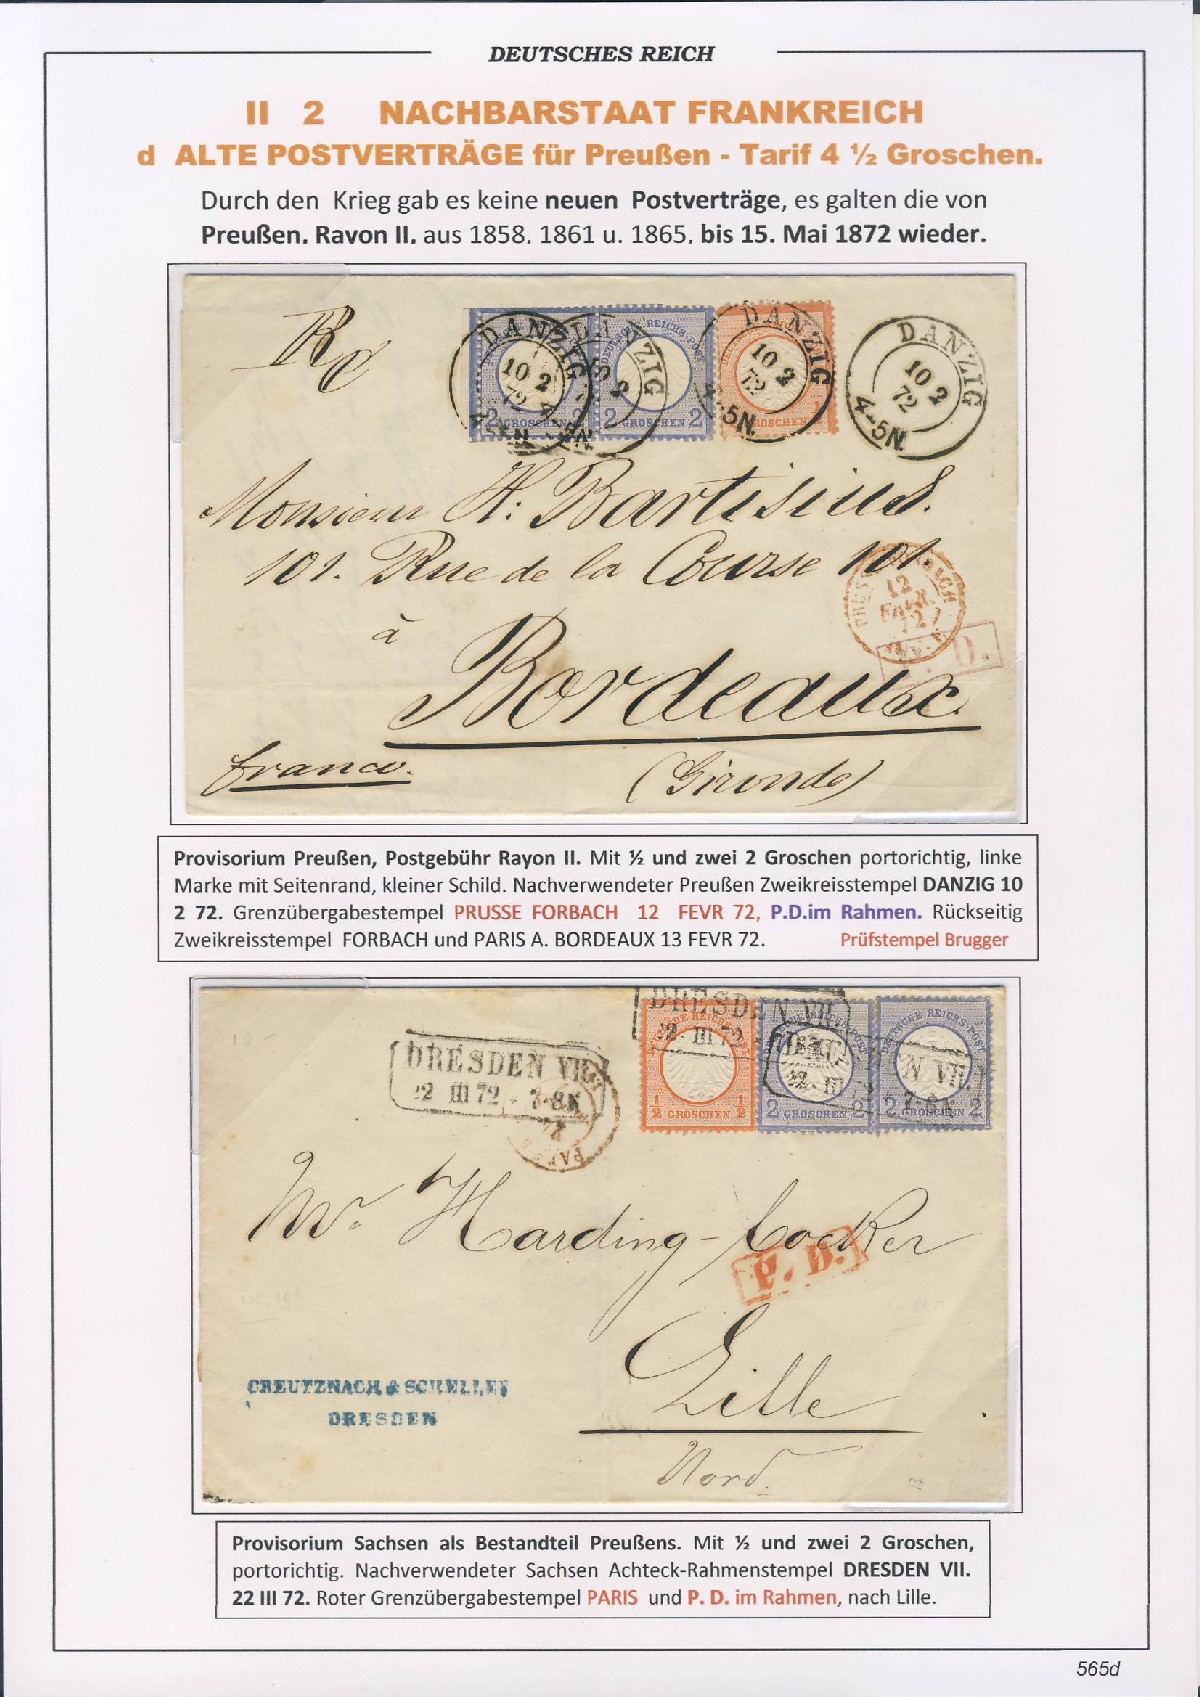 DEUTSCHES REICH
II 2 NACHBARSTAAT FRANKREICH
d ALTE POSTVERTRÄGE für Preußen - Tarif 4 ½ Groschen.
Durch den Krieg gab es keine neuen Postverträge, es galten die von
Preußen. Rayon II. aus 1858. 1861 u. 1865. bis 15. Mai 1872 wieder.
DANZIG
10 2
72
DANZIG
DANZIG
10 2
72
DANZIG
10 2
72
4-5N.
2 GROSCHEN 2
2 GROSCHEN 2
GROSCHEN
Monsieur H: Bartisius.
101. Rue de la Course 101.
à
Bordeaux
franco.
(Gironde)
12
FEVR.
72
P. D.
Provisorium Preußen, Postgebühr Rayon II. Mit ½ und zwei 2 Groschen portorichtig, linke
Marke mit Seitenrand, kleiner Schild. Nachverwendeter Preußen Zweikreisstempel DANZIG 10
2 72. Grenzübergabestempel PRUSSE FORBACH 12 FEVR 72, P.D.im Rahmen. Rückseitig
Zweikreisstempel FORBACH und PARIS A. BORDEAUX 13 FEVR 72. Prüfstempel Brugger
DRESDEN VII.
22 III 72 - 7-8
DRESDEN VII.
22 III 72
N VII.
1/2 GROSCHEN 1/2
2 GROSCHEN 2
2 GROSCHEN 2
Mr. Harding-Cocker
P. D.
Lille
Nord.
CREUTZNACH & SCHELLER
DRESDEN
Provisorium Sachsen als Bestandteil Preußens. Mit ½ und zwei 2 Groschen,
portorichtig. Nachverwendeter Sachsen Achteck-Rahmenstempel DRESDEN VII.
22 III 72. Roter Grenzübergabestempel PARIS und P. D. im Rahmen, nach Lille.
565d